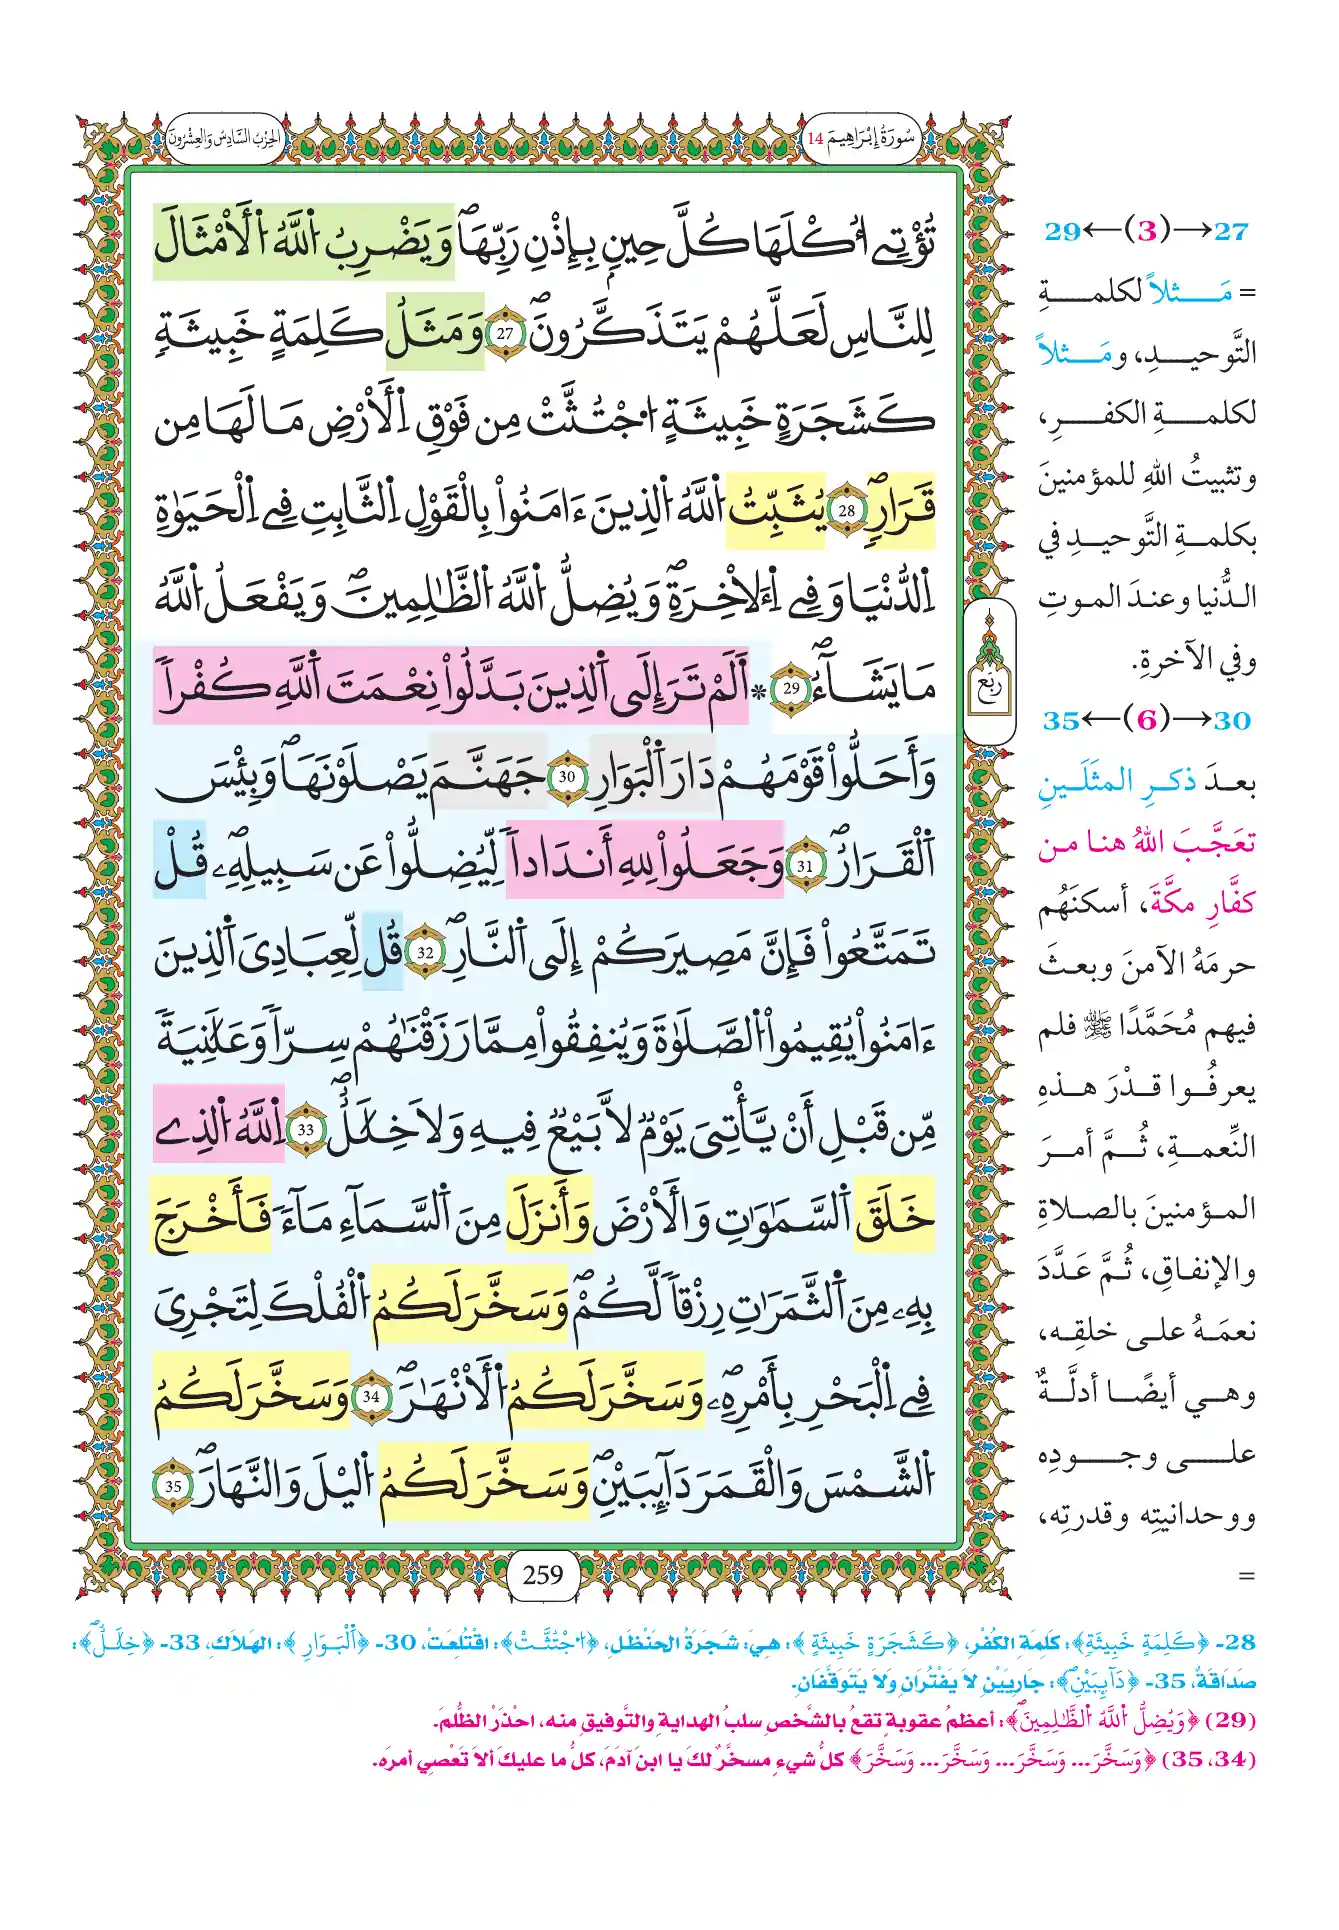 سُورَةُ إِبْرَاهِيمَ 14
الحِزْبُ السَّادِسُ وَالعِشْرُونَ
تُؤْتِےٓ أُكْلَهَا كُلَّ حِينِۢ بِإِذْنِ رَبِّهَاۖ وَيَضْرِبُ اُ۬للَّهُ اُ۬لَامْثَالَ
لِلنَّاسِ لَعَلَّهُمْ يَتَذَكَّرُونَۖ 27 وَمَثَلُ كَلِمَةٍ خَبِيثَةٖ
كَشَجَرَةٍ خَبِيثَةٍ اُ۟جْتُثَّتْ مِن فَوْقِ اِ۬لَارْضِ مَا لَهَا مِن
قَرَارٖۖ 28 يُثَبِّتُ اُ۬للَّهُ اُ۬لذِينَ ءَامَنُواْ بِالْقَوْلِ اِ۬لثَّابِتِ فِے اِ۬لْحَيَوٰةِ
اِ۬لدُّنْيَا وَفِے اِ۬لَاخِرَةِۖ وَيُضِلُّ اُ۬للَّهُ اُ۬لظَّٰلِمِينَۖ وَيَفْعَلُ اُ۬للَّهُ
مَا يَشَآءُۖ 29 * أَلَمْ تَرَ إِلَى اَ۬لذِينَ بَدَّلُواْ نِعْمَتَ اَ۬للَّهِ كُفْراٗ
وَأَحَلُّواْ قَوْمَهُمْ دَارَ اَ۬لْبَوَارِ 30 جَهَنَّمَ يَصْلَوْنَهَاۖ وَبِيسَ
اَ۬لْقَرَارُۖ 31 وَجَعَلُواْ لِلهِ أَندَاداٗ لِّيُضِلُّواْ عَن سَبِيلِهِۦۖ قُلْ
تَمَتَّعُواْ فَإِنَّ مَصِيرَكُمْ إِلَى اَ۬لنَّارِۖ 32 قُل لِّعِبَادِيَ اَ۬لذِينَ
ءَامَنُواْ يُقِيمُواْ اُ۬لصَّلَوٰةَ وَيُنفِقُواْ مِمَّا رَزَقْنَٰهُمْ سِرّاٗ وَعَلَٰنِيَةٗ
مِّن قَبْلِ أَنْ يَّأْتِيَ يَوْمٞ لَّا بَيْعٞ فِيهِ وَلَا خِلَٰلٌۖ 33 اِ۬للَّهُ اُ۬لذِے
خَلَقَ اَ۬لسَّمَٰوَٰتِ وَالَارْضَ وَأَنزَلَ مِنَ اَ۬لسَّمَآءِ مَآءٗ فَأَخْرَجَ
بِهِۦ مِنَ اَ۬لثَّمَرَٰتِ رِزْقاٗ لَّكُمْۖ وَسَخَّرَ لَكُمُ اُ۬لْفُلْكَ لِتَجْرِيَ
فِے اِ۬لْبَحْرِ بِأَمْرِهِۦۖ وَسَخَّرَ لَكُمُ اُ۬لَانْهَٰرَۖ 34 وَسَخَّرَ لَكُمُ
اُ۬لشَّمْسَ وَالْقَمَرَ دَآئِبَيْنِۖ وَسَخَّرَ لَكُمُ اُ۬ليْلَ وَالنَّهَارَۖ 35
ربع
259
27→(3)←29
= مَثلاً لكلمةِ
التَّوحيدِ، ومَثلاً
لكلمةِ الكفرِ،
وتثبيتُ اللهِ للمؤمنينَ
بكلمةِ التَّوحيدِ في
الدُّنيا وعندَ الموتِ
وفي الآخرةِ.
30→(6)←35
بعدَ ذكرِ المثَلَينِ
تعَجَّبَ اللهُ هنا من
كفَّارِ مكَّةَ، أسكنَهُم
حرمَهُ الآمنَ وبعثَ
فيهم مُحَمَّدًا ﷺ فلم
يعرفُوا قدْرَ هذهِ
النِّعمةِ، ثُمَّ أمرَ
المؤمنينَ بالصلاةِ
والإنفاقِ، ثُمَّ عَدَّدَ
نعمَهُ على خلقِه،
وهي أيضًا أدلَّةٌ
على وجودِه
ووحدانيتِه وقدرتِه،
=
28- ﴿كَلِمَةٍ خَبِيثَةٖ﴾: كَلِمَةِ الكُفْرِ، ﴿كَشَجَرَةٍ خَبِيثَةٍ﴾: هِيَ: شَجَرَةُ الحَنْظَلِ، ﴿اُ۟جْتُثَّتْ﴾: اقْتُلِعَتْ، 30- ﴿اَ۬لْبَوَارِ﴾: الهَلَاكِ، 33- ﴿خِلَٰلٌۖ﴾:
صَدَاقَةٌ، 35- ﴿دَآئِبَيْنِۖ﴾: جارِيَيْنِ لا يَفْتُرَانِ ولا يَتَوَقَّفَانِ.
(29) ﴿وَيُضِلُّ اُ۬للَّهُ اُ۬لظَّٰلِمِينَۖ﴾: أعظمُ عقوبةٍ تقعُ بالشَّخصِ سلبُ الهدايةِ والتَّوفيقِ منه، احذَرْ الظُّلمَ.
(34، 35) ﴿وَسَخَّرَ... وَسَخَّرَ... وَسَخَّرَ... وَسَخَّرَ﴾ كلُّ شيءٍ مسخَّرٌ لكَ يا ابنَ آدَمَ، كلُّ ما عليكَ ألا تَعْصِي أمرَه.